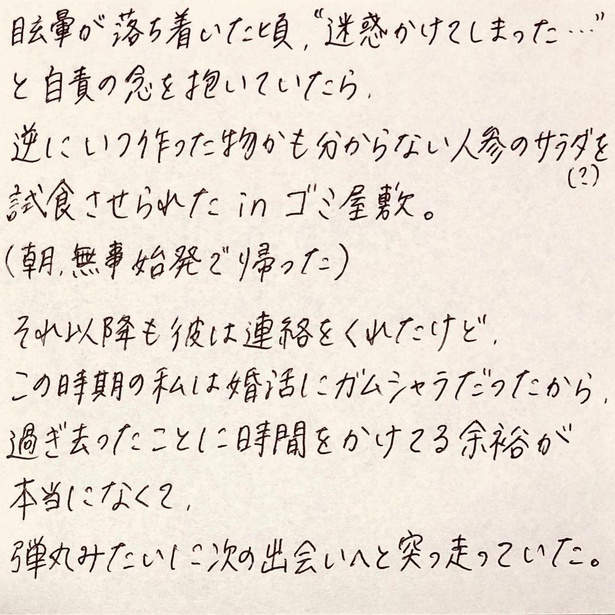 眩暈が落ち着いた頃、“迷惑かけてしまった…”
と自責の念を抱いていたら、
逆にいつ作った物かも分からない人参のサラダを
(?)
試食させられた in ゴミ屋敷。
(朝、無事始発で帰った)
それ以降も彼は連絡をくれたけど、
この時期の私は婚活にガムシャラだったから、
過ぎ去ったことに時間をかけてる余裕が
本当になくて、
弾丸みたいに次の出会いへと突っ走っていた。